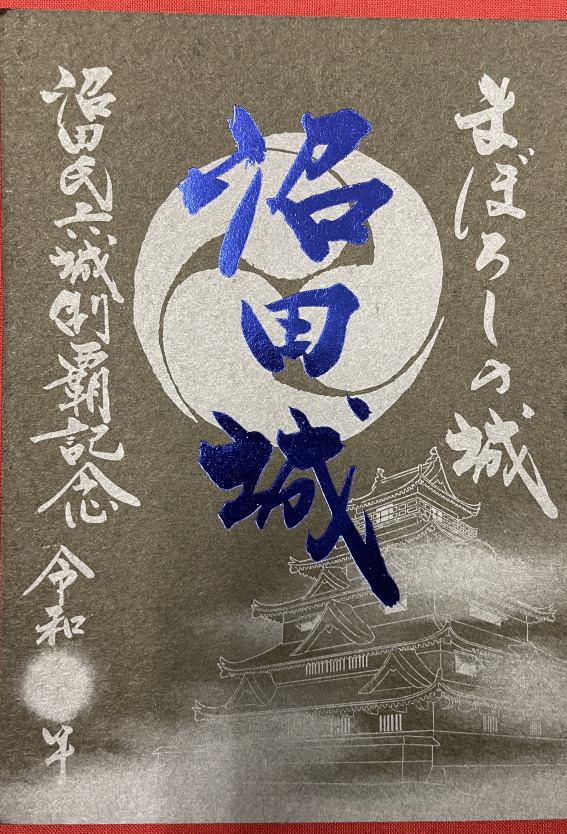 まぼろしの城
沼田城
沼田氏六城制覇記念
令和 年